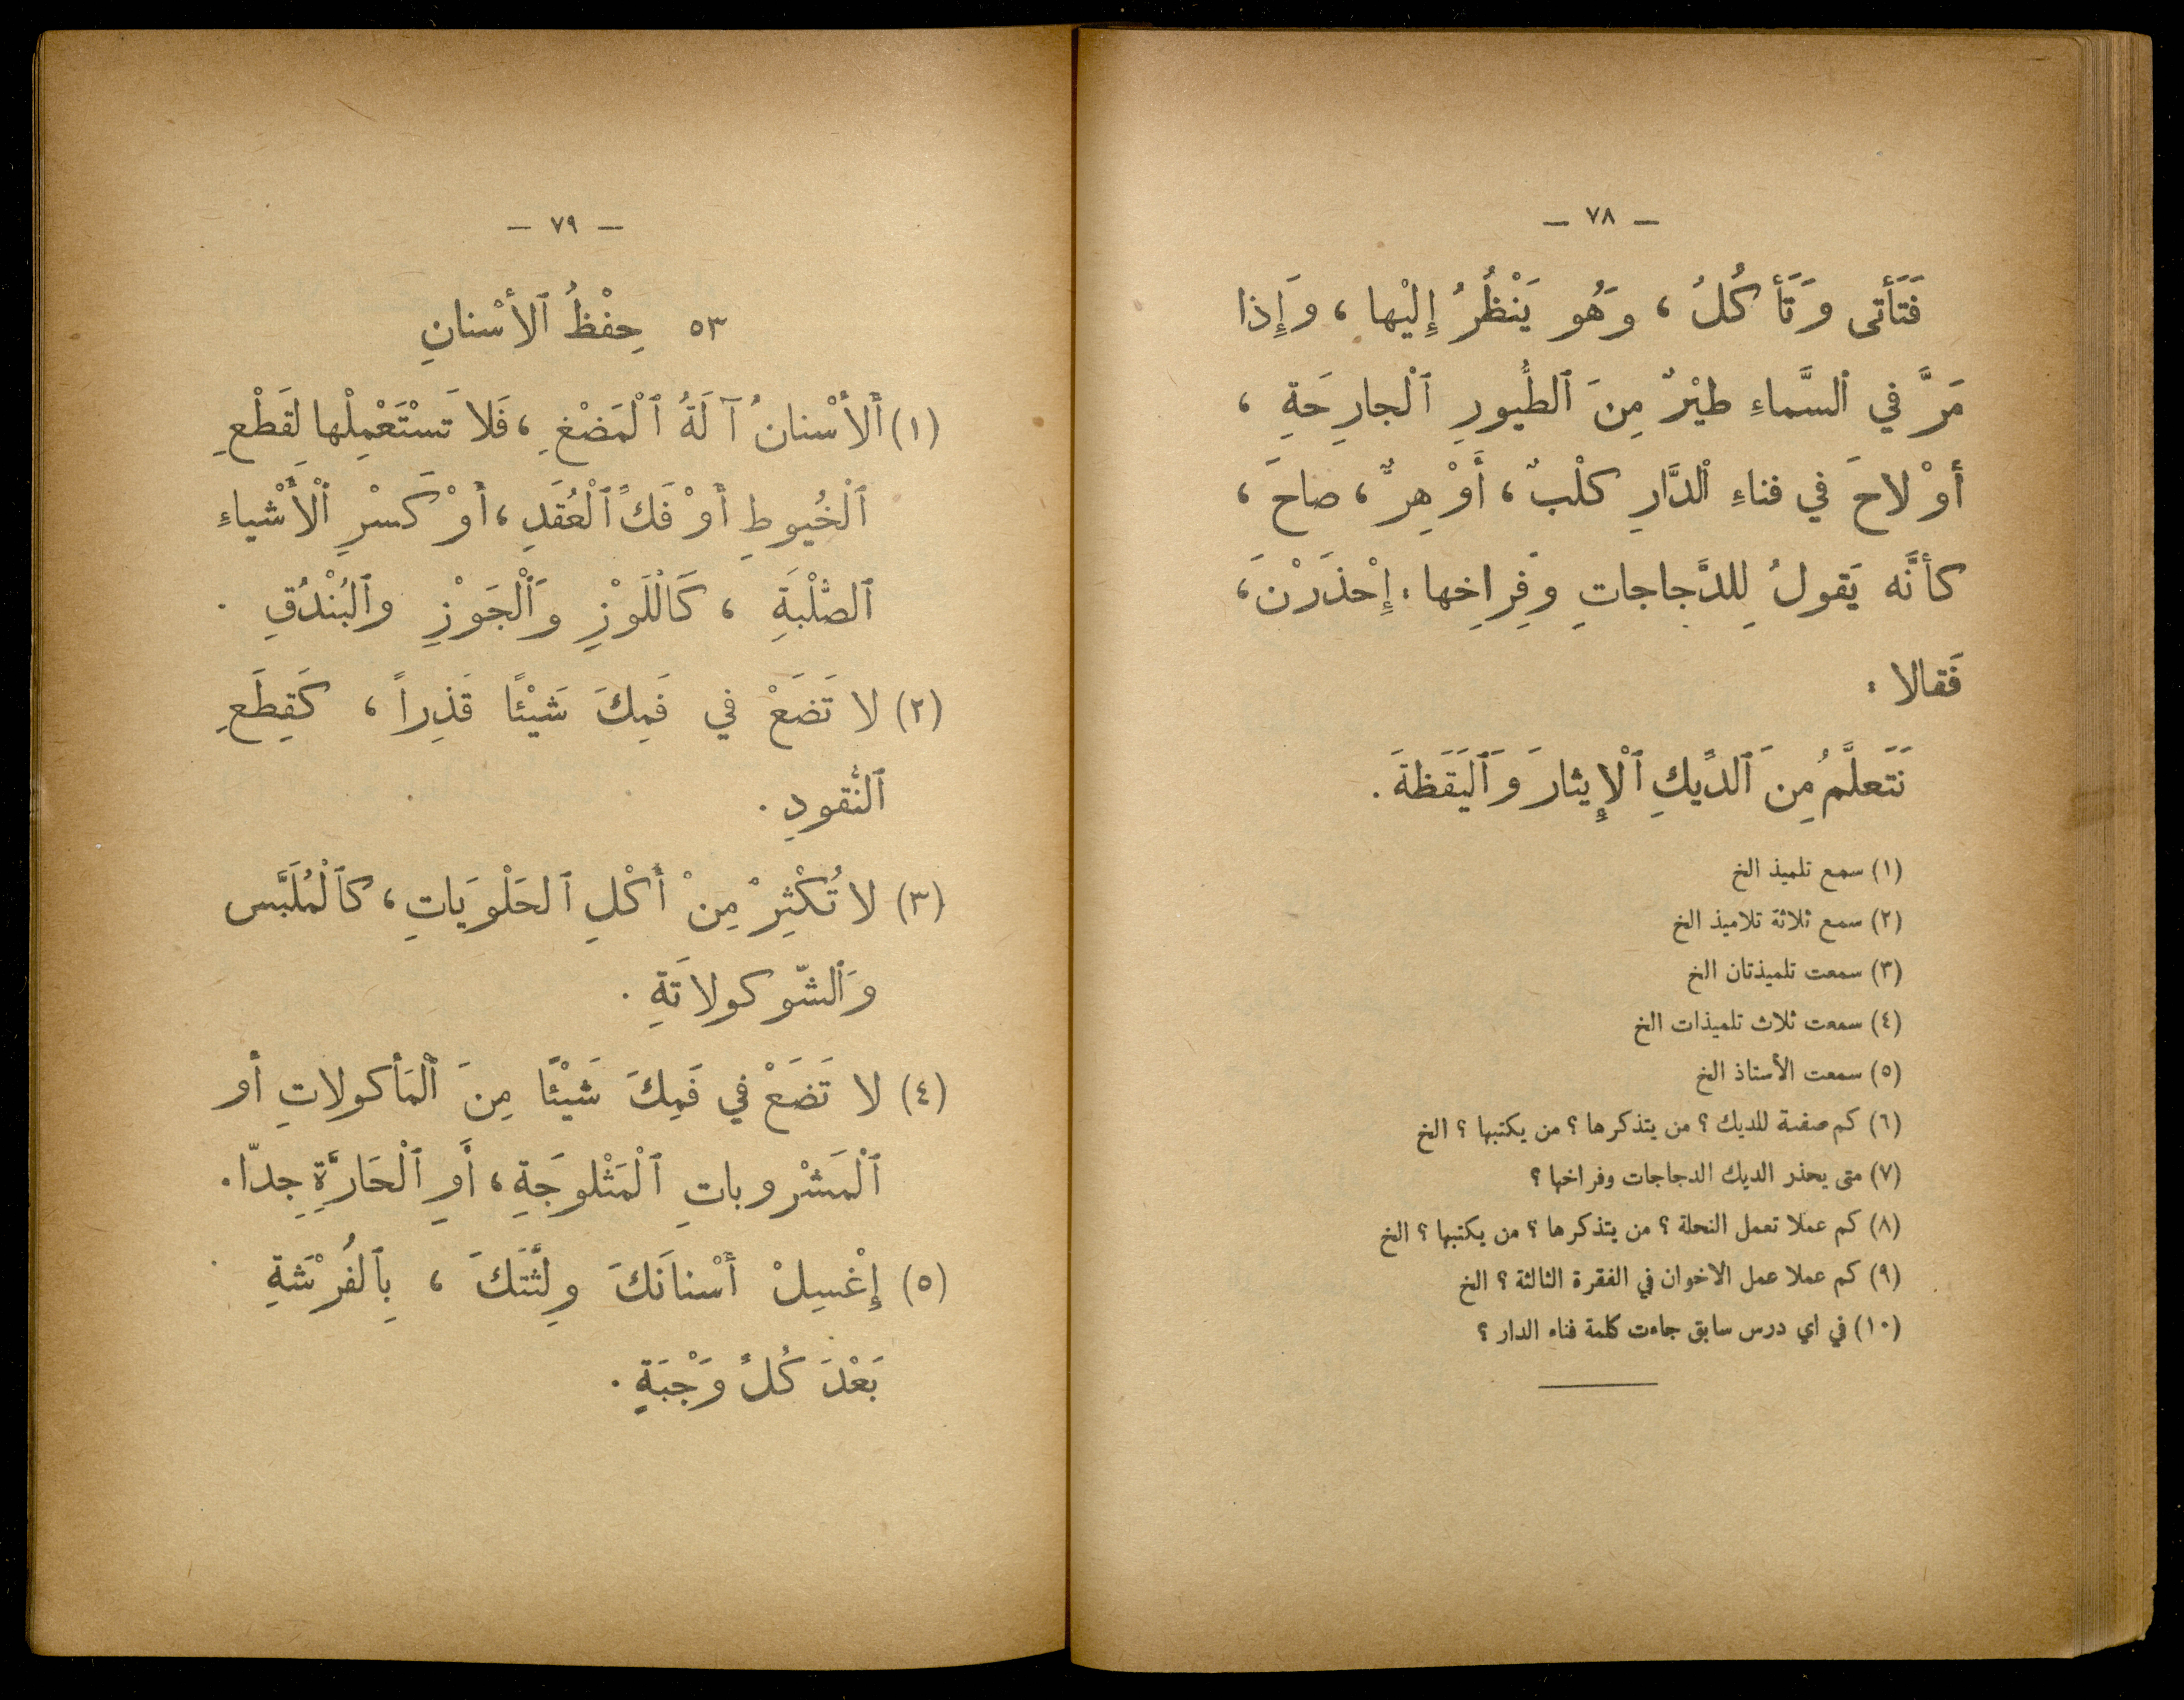 — ٧٨ —
فَتَأتى وَتَأكُلُ ، وَهُو يَنْظُرُ إِلَيْها ، وَإِذا
مَرَّ في ٱلسَّماءِ طيْرٌ مِنَ ٱلطُّيورِ ٱلْجارِحَةِ ،
أوْ لاحَ في فناءِ ٱلدَّارِ كلْبٌ ، أَوْ هِرٌّ ، صاحَ ،
كأنَّه يَقولُ لِلدَّجاجاتِ وَفِراخِها : إِحْذَرْنَ ،
فَقالا :
نَتَعلَّمُ مِنَ ٱلدِّيكِ ٱلْإِيثارَ وَٱلْيَقَظةَ .
(١) سمع تلميذ الخ
(٢) سمع ثلاثة تلاميذ الخ
(٣) سمعت تلميذتان الخ
(٤) سمعت ثلاث تلميذات الخ
(٥) سمعت الأستاذ الخ
(٦) كم صفة للديك ؟ من يتذكرها ؟ من يكتبها ؟ الخ
(٧) متى يحذر الديك الدجاجات وفراخها ؟
(٨) كم عملا تعمل النحلة ؟ من يتذكرها ؟ من يكتبها ؟ الخ
(٩) كم عملا عمل الاخوان في الفقرة الثالثة ؟ الخ
(١٠) في اي درس سابق جاءت كلمة فناء الدار ؟
— ٧٩ —
٥٣ حِفْظُ ٱلأسْنانِ
(١) أَلأَسْنانُ آلَةُ ٱلْمَضْغِ ، فَلا تَسْتَعْمِلْها لِقَطْعِ
ٱلْخُيوطِ أوْ فَكِّ ٱلْعُقَدِ ، أوْ كَسْرِ ٱلْأَشْياءِ
ٱلصُّلْبَةِ ، كَاللَّوْزِ وَٱلْجَوْزِ وٱلبُنْدُقِ .
(٢) لا تَضَعْ في فَمِكَ شَيْئًا قَذِراً ، كَقِطَعِ
ٱلنُّقودِ .
(٣) لا تُكْثِرْ مِنْ أَكْلِ ٱلحَلْوَيَاتِ ، كٱلْمُلَبَّس
وَٱلشّوكولاتَةِ .
(٤) لا تَضَعْ في فَمِكَ شَيْئًا مِنَ ٱلْمَأكولاتِ أو
ٱلْمَشْروباتِ ٱلْمَثْلوجَةِ ، أَوِ ٱلْحَارَّةِ جِدّا .
(٥) إِغْسِلْ أَسْنانَكَ ولِثَّتَكَ ، بِٱلفُرْشَةِ
بَعْدَ كُلِّ وَجْبَةٍ .